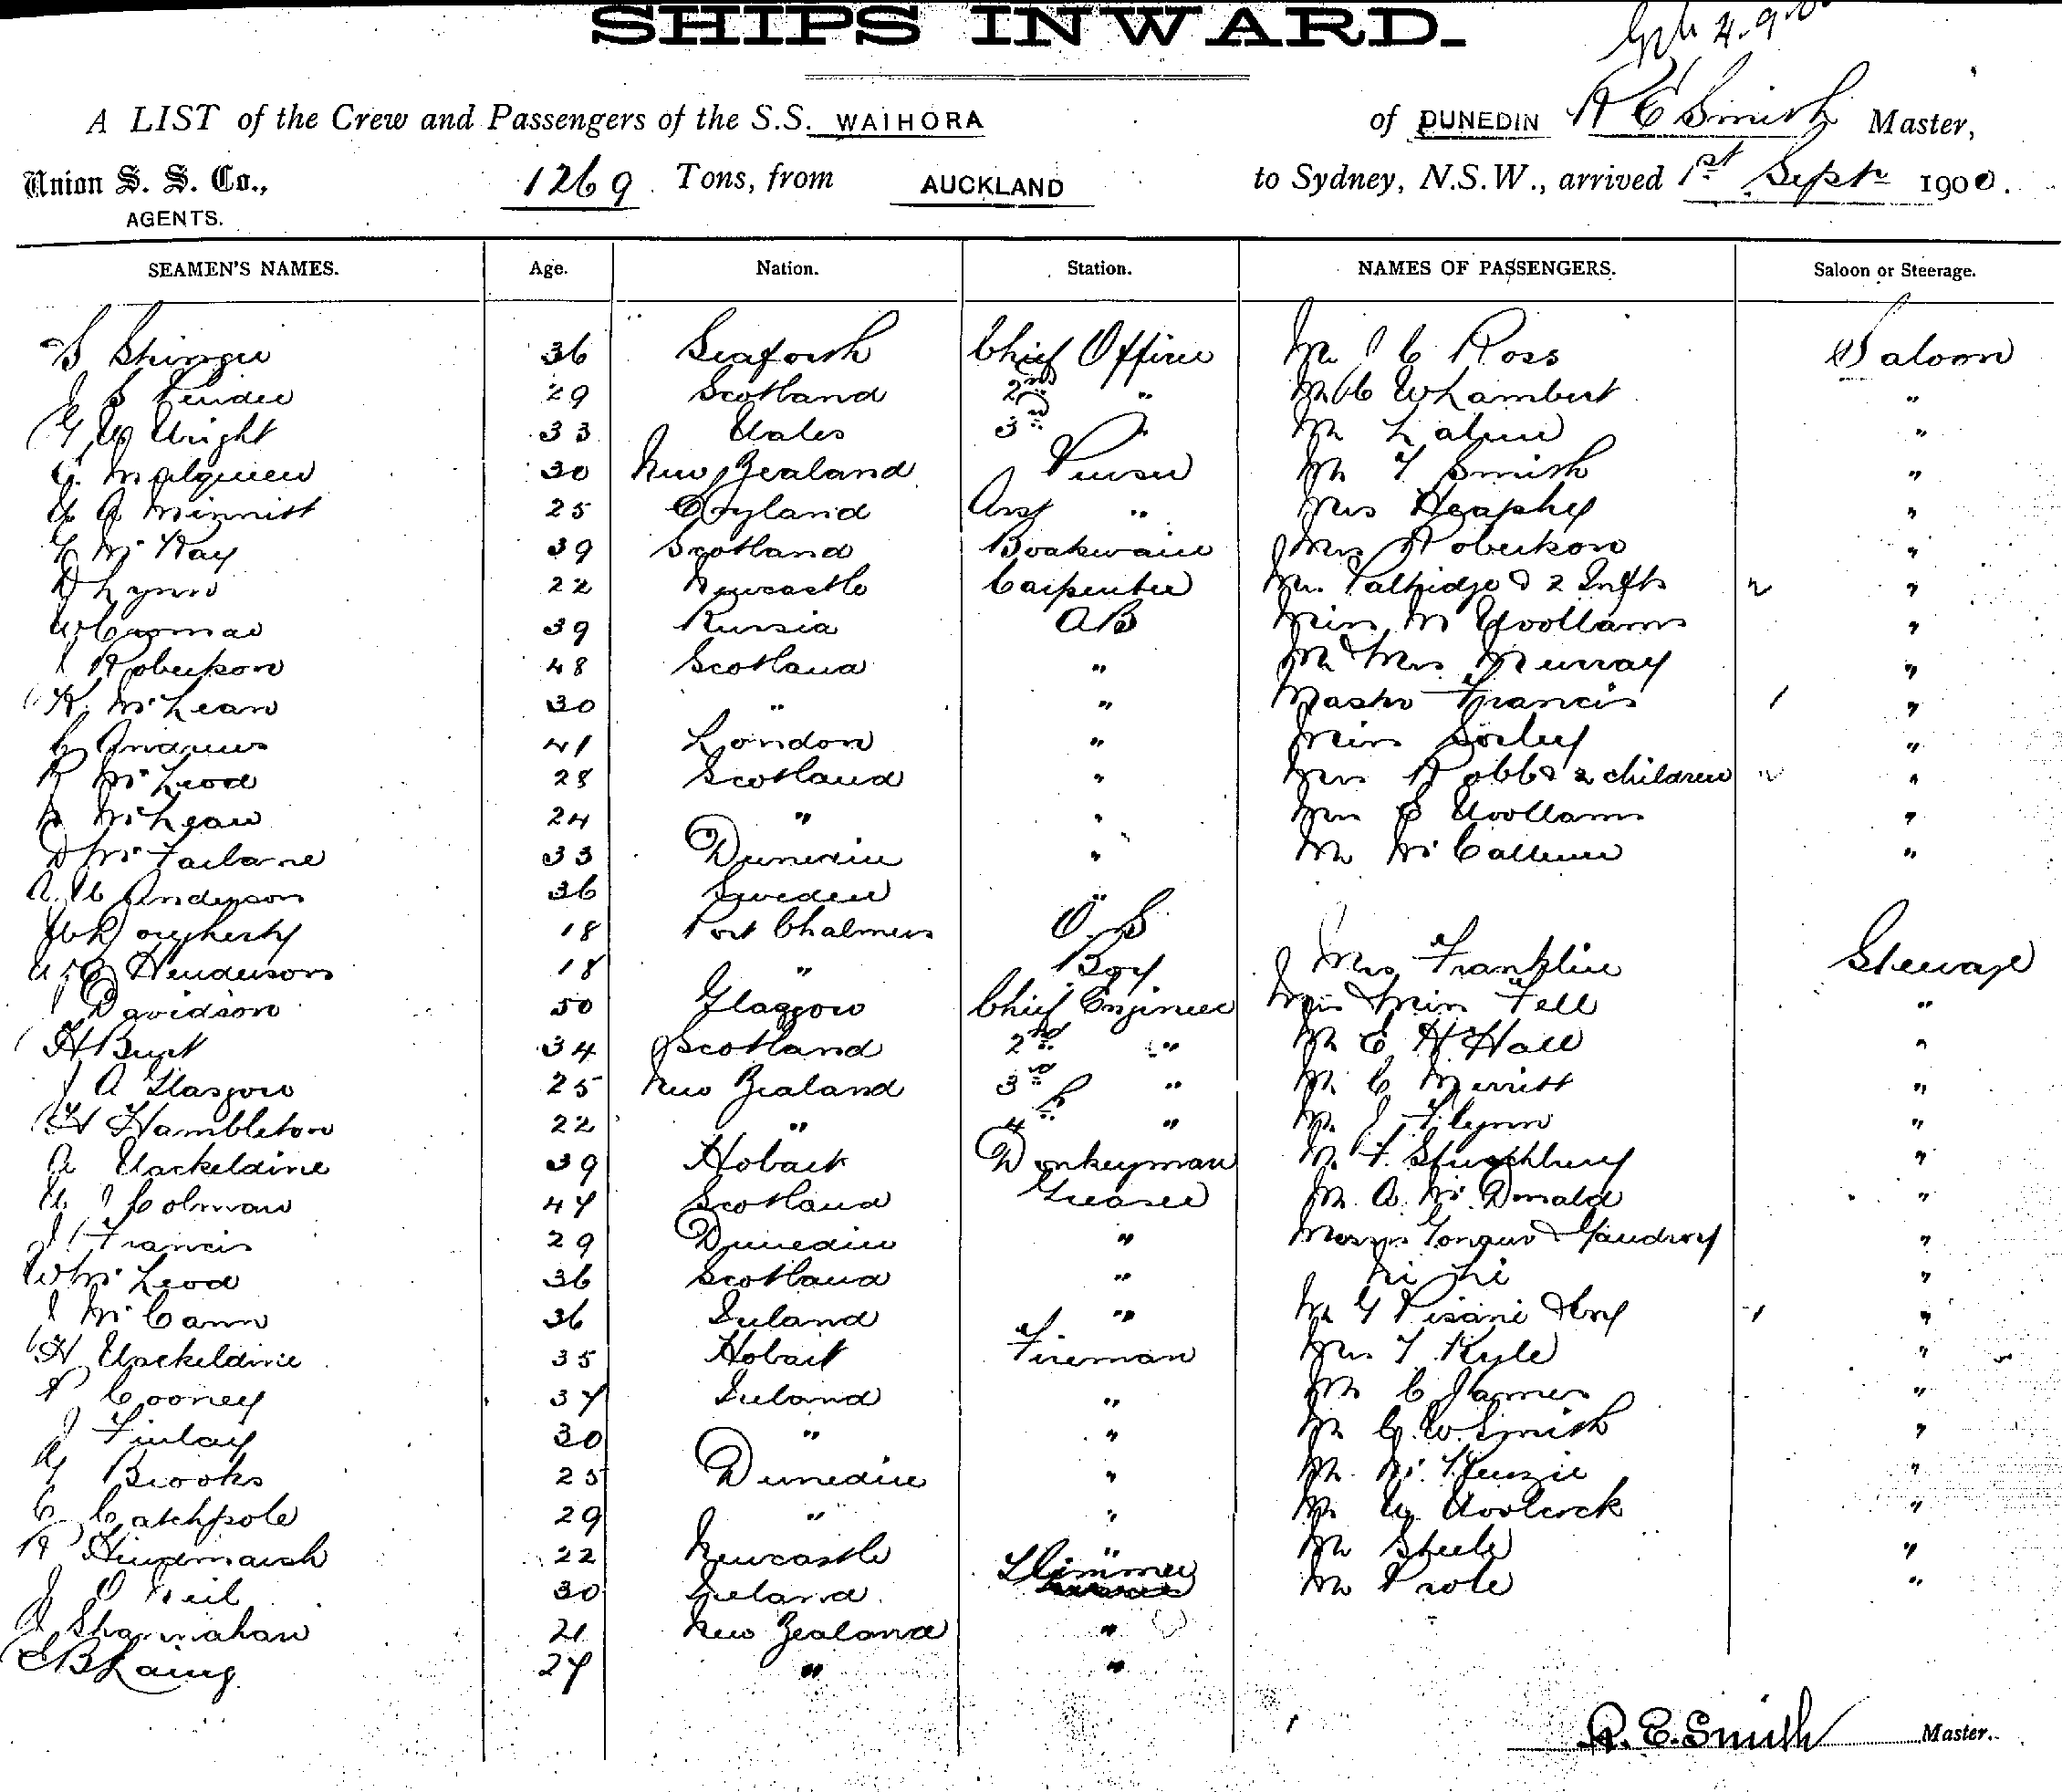 SHIPS INWARD.
4.9.00
A LIST of the Crew and Passengers of the S.S. WAIHORA of DUNEDIN R E Smith Master,
Union S. S. Co., 1269 Tons, from AUCKLAND to Sydney, N.S.W., arrived 1st Septr 1900.
AGENTS.
SEAMEN'S NAMES. Age. Nation. Station. NAMES OF PASSENGERS. Saloon or Steerage.
S 36 Seaforth Chief Officer Mr J C Ross Saloon
J S 29 Scotland 2nd " Mr C W Lambert "
G W Wright 33 Wales 3rd " Mr "
30 New Zealand Purser Mr T Smith "
A Minnitt 25 England Asst " Mrs Heaphy "
McKay 39 Scotland Boatswain Mrs Robertson "
D Lynn 22 Newcastle Carpenter Mrs Partridge & 2 Infts 2 "
39 Russia AB Miss M Woollams "
J Robertson 48 Scotland " Mr & Mrs Murray "
K McLean 30 " " Master Francis 1 "
C Andrews 41 London " Miss "
R McLeod 28 Scotland " Mrs Robb & 2 children 2 "
McLean 24 " " E Woollams "
D McFarlane 33 Dunedin " Mr McCallum "
A. C Anderson 36 Sweden "
Dougherty 18 Port Chalmers O.S
Henderson 18 " Boy Mrs Franklin Steerage
J Davidson 50 Glasgow Chief Engineer Mrs & Miss Fell "
H Burt 34 Scotland 2nd " Mr E H Hall "
J A Glasgow 25 New Zealand 3rd " Mr C Merritt "
H Hambleton 22 " 4th " Mr J Flynn "
A Wackeldine 39 Hobart Donkeyman Mr F. Stutchbury "
W J Colman 47 Scotland Greaser Mr A. McDonald "
J Francis 29 Dunedin " Messrs & Gaudroy "
W McLeod 36 Scotland " "
J McCann 36 Ireland " Mr G Pisani & boy 1 "
H Wackeldine 35 Hobart Fireman T Kyle "
P Cooney 37 Ireland " Mr C James "
J Finlay 30 " " Mr G. W. Smith "
G Brooks 25 Dunedin " Mr McKenzie "
C Catchpole 29 " " Mr W Woolcock "
R Hindmarsh 22 Newcastle " Mr Steele "
J O'Neil 30 Ireland Trimmer Mr Prole "
J Shannahan 21 New Zealand "
E B Laing 27 " "
R. E. Smith Master.